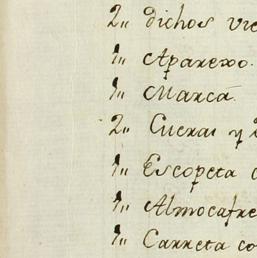 2,, dichos vie
1,, Aparexo.
1,, Marca.
2,, Cueras y
1,, Escopeta
1,, Almocafre
1,, Carreta co